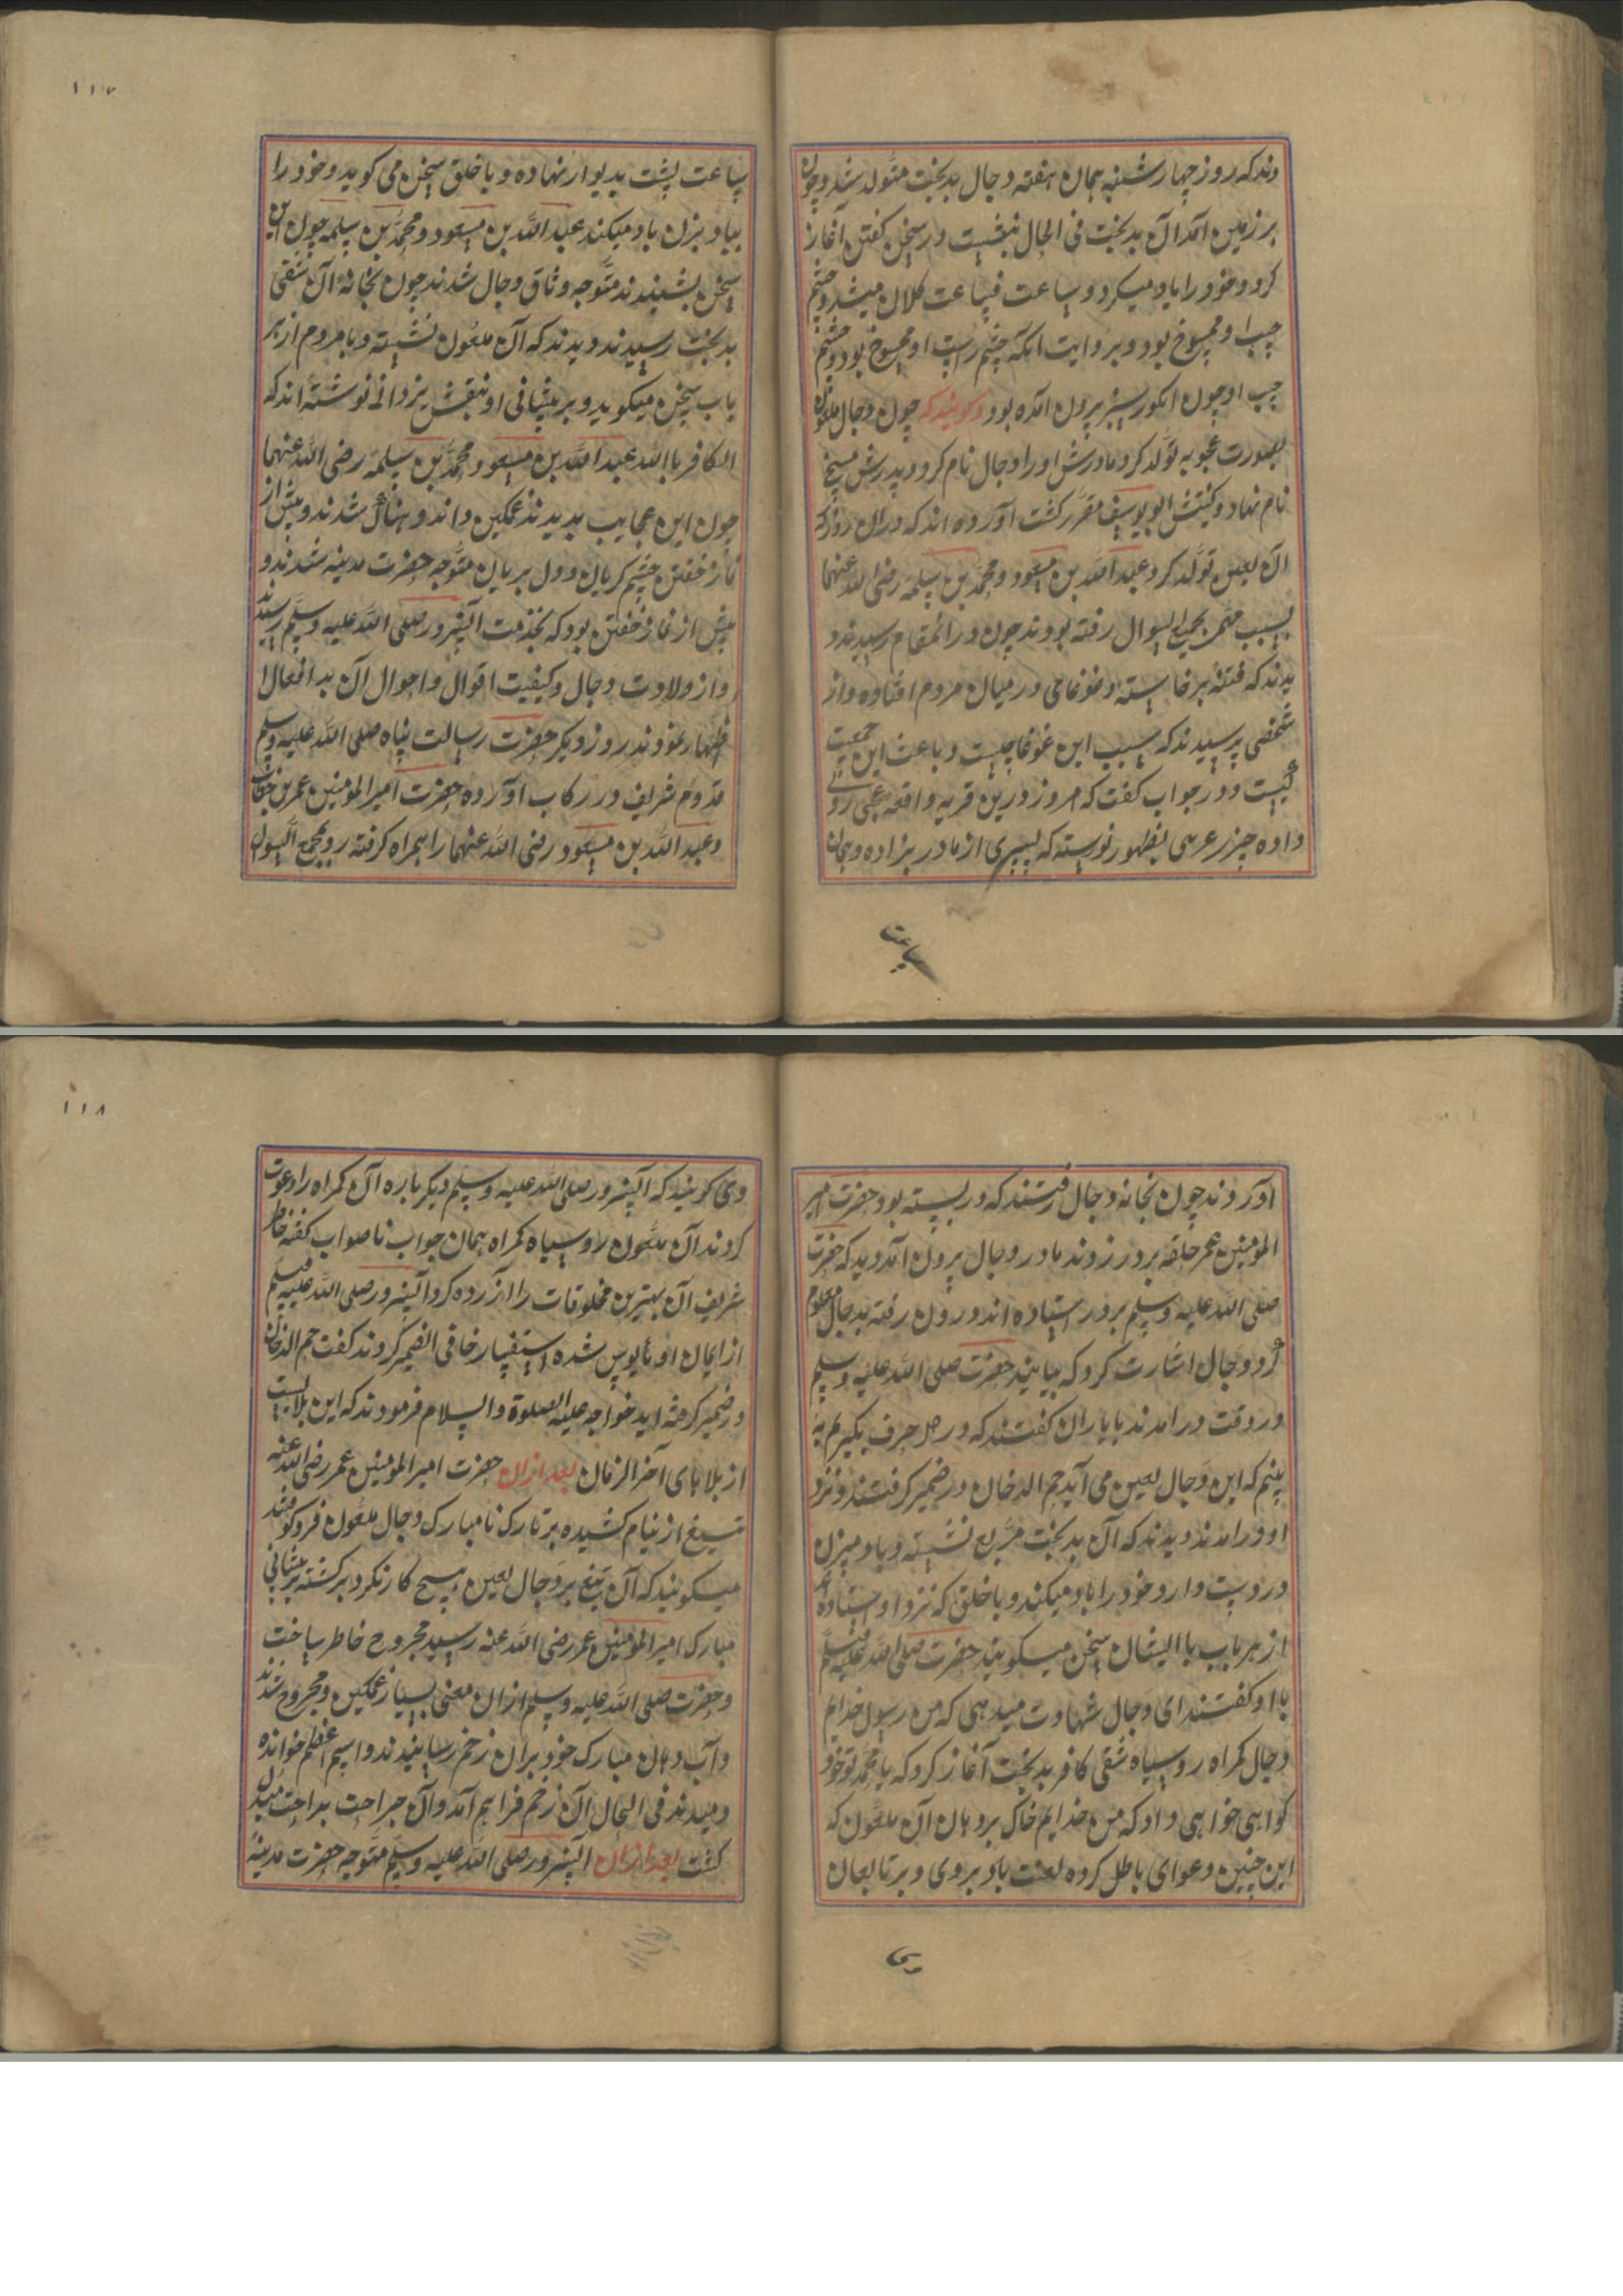 وند که روز چهارشنبه همان هفته دجال بدبخت متولد شد و چون
بر زمین آمد آن بدبخت فی الحال بنشست و در سخن گفتن آغاز
کرد و خود را باد میکرد و ساعت فساعت کلان میشد و چشم
چپ او ممسوخ بود و بروایت آنکه چشم راست او ممسوخ بود و چشم
چپ او چون انگور سبز برون آمده بود و گویند که چون دجال ملعون
بصورت عجوبه تولد کرد مادرش او را دجال نام کرد و پدرش مسیح
نام نهاد و کنیتش ابو یوسف مقرر گشت آورده اند که در آن روز که
آن لعین تولد کرد عبد الله بن مسعود و محمد بن سلمه رضی الله عنهما
بسبب مهمی بمجمع السوال رفته بودند چون در آنمقام رسیدند و
دیدند که فتنهٔ برخاسته و غوغای در میان مردم افتاده و از
شخصی پرسیدند که سبب این غوغا چیست و باعث این جمعیت
کیست او در جواب گفت که امروز درین قریه واقعه عجبی روی
داده چیز غریبی بظهور نورسته که پسری از مادر بزاده و همان
ساعت
۱۱۷
ساعت پشت بدیوار نهاده و با خلق سخن می گوید و خود را
بباد بزن باد میکند عبد الله بن مسعود و محمد بن سلمه چون این
سخن بشنیدند متوجه وثاق دجال شدند چون بخانهٔ آن شقی
بدبخت رسیدند دیدند که آن ملعون نشسته و با مردم از هر
باب سخن میگوید و بر پیشانی او بنقش یزدانی نوشته اند که
الکافر بالله عبد الله بن مسعود و محمد بن سلمه رضی الله عنهما
چون این عجایب بدیدند غمگین و اندوهناک شدند و پیش از
نماز خفتن چشم گریان و دل بریان متوجه حضرت مدینه شدند و
پیش از نماز خفتن بود که بخدمت آنسرور صلی الله علیه وسلم رسیدند
و از ولادت دجال و کیفیت اقوال و احوال آن بد افعال ا
ظهار نمودند روز دیگر حضرت رسالت پناه صلی الله علیه وسلم
قدوم شریف در رکاب آورده حضرت امیر المومنین عمر بن خطاب
و عبد الله بن مسعود رضی الله عنهما را همراه گرفته رو بمجمع السوال
آوردند چون بخانه دجال رفتند که در بسته بود حضرت امیر
المومنین عمر حلقه بر در زدند مادر دجال برون آمد دید که حضرت
صلی الله علیه وسلم بر در استاده اند درون رفته بدجال معلوم
کرد دجال اشارت کرد که بیایند حضرت صلی الله علیه وسلم
در وقت درآمدند با یاران گفتند که در دل حرف بگیرم به
بینم که این دجال لعین می آید حم الدخان در ضمیر گرفتند و نزد
او درآمدند دیدند که آن بدبخت مربع نشسته و باد میزن
در دست دارد و خود را باد میکند و با خلق که نزد او استاده اند
از هر باب با ایشان سخن میگویند حضرت صلی الله علیه وسلم
با او گفتند ای دجال شهادت میدهی که من رسول خدایم
دجال گمراه رو سیاه شقی کافر بدبخت آغاز کرد که یا محمد تو خود
گواهی خواهی داد که من خدایم خاک بر دهان آن ملعون که
این چنین دعوای باطل کرده لعنت باد بر وی و بر تابعان
وی
۱۱۸
وی گویند که آنسرور صلی الله علیه وسلم دیگر باره آن گمراه را دعوت
کردند آن ملعون رو سیاه گمراه همان جواب ناصواب گفته خاطر
شریف آن بهترین مخلوقات را آزرده کرد آنسرور صلی الله علیه وسلم
از ایمان او مأیوس شده استفسار ما فی الضمیر کردند گفت حم الدخان
در ضمیر گرفته اید خواجه علیه الصلوة والسلام فرمودند که این بلاییست
از بلاهای آخر الزمان بعد ازان حضرت امیر المومنین عمر رضی الله عنه
تیغ از نیام کشیده بر تارک نامبارک دجال ملعون فرو کوفتند
میگویند که آن تیغ بر دجال لعین هیچ کار نکرد بر گشته بر پیشانی
مبارک امیر المومنین عمر رضی الله عنه رسید مجروح خاطر ساخت
و حضرت صلی الله علیه وسلم ازان معنی بسیار غمگین و مجروح شدند
و آب دهان مبارک خود بران زخم رسانیدند و اسم اعظم خوانده
دمیدند فی الحال آن زخم فراهم آمد و آن جراحت براحت مبدل
گشت بعد ازان آنسرور صلی الله علیه وسلم متوجه حضرت مدینه